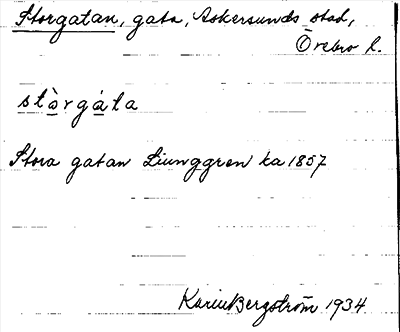 Storgatan, gata, Askersunds stad,
Örebro l.
stòrgáta
Stora gatan Ljunggren ka 1857
Karin Bergström 1934